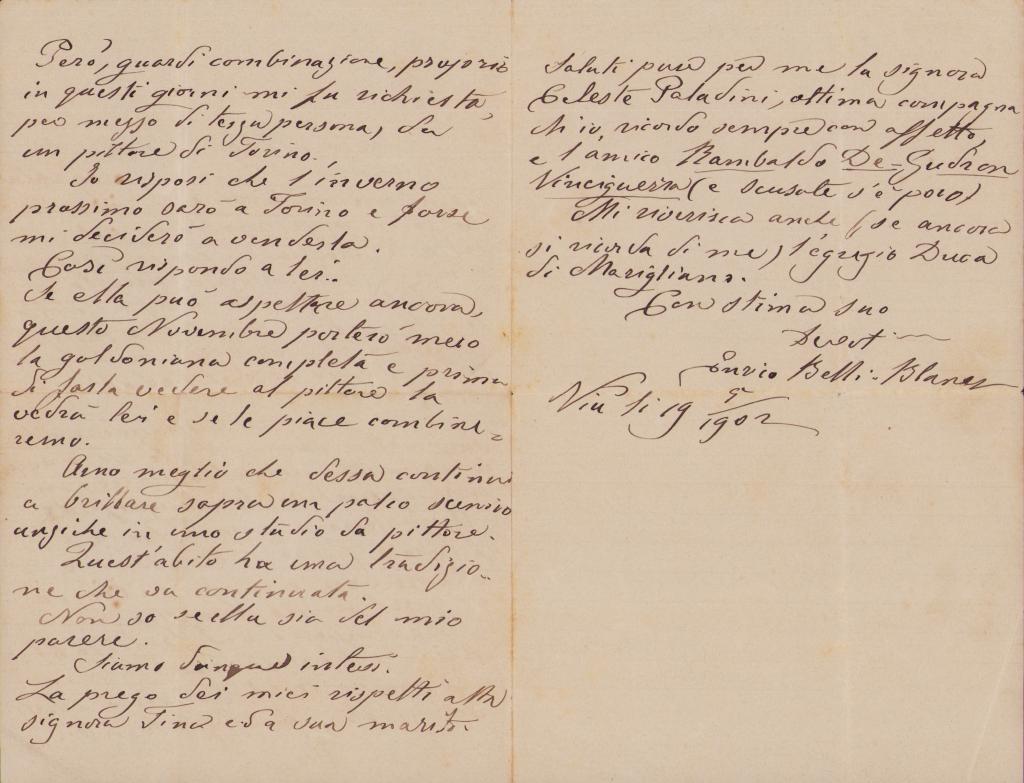 Però, guardi combinazione, proprio
in questi giorni mi fu richiesta,
per mezzo di terza persona, da
un pittore di Torino.
Io risposi che l'inverno
prossimo sarò a Torino e forse
mi deciderò a venderla.
Così rispondo a lei.
Se ella può aspettare ancora,
questo Novembre porterò meco
la goldoniana completa e prima
di farla vedere al pittore la
vedrà lei e se le piace combine=
remo.
Amo meglio che dessa continui
a brillare sopra un palco scenico
anziche in uno studio da pittore.
Quest'abito ha una tradizio=
ne che va continuata.
Non so se ella sia del mio
parere.
Siamo dunque intesi.
La prego dei miei rispetti alla
signora Tina ed a suo marito.
Saluti pure per me la signora
Celeste Paladini, ottima compagna
ch'io, ricordo sempre con affetto,
e l'amico Rambaldo De-Gudron
Vinciguerra (e scusate s'è poco)
Mi riverisca anche (se ancora
si ricorda di me) l'egregio Duca
di Marigliano.
Con stima suo
Devot
Enrico Belli-Blanes
Viu li 19 9/1902